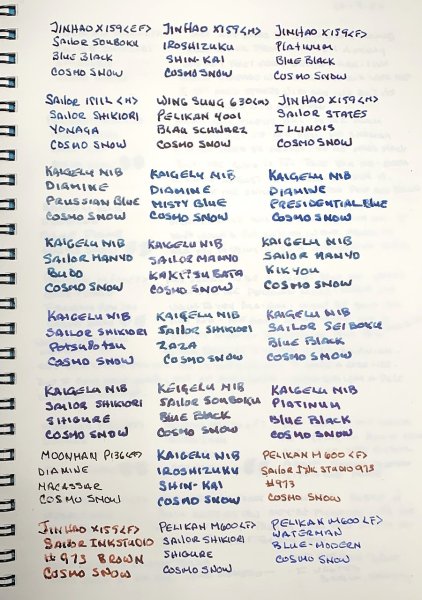 JINHAO X159<EF>
SAILOR SOUBOKU
BLUE BLACK
COSMO SNOW
JINHAO X159<M>
IROSHIZUKU
SHIN-KAI
COSMO SNOW
JINHAO X159<F>
PLATINUM
BLUE BLACK
COSMO SNOW
SAILOR 1911L <M>
SAILOR SHIKIORI
YONAGA
COSMO SNOW
WING SUNG 630<M>
PELIKAN 4001
BLAU SCHWARZ
COSMO SNOW
JINHAO X159<M>
SAILOR STATES
ILLINOIS
COSMO SNOW
KAIGELU NIB
DIAMINE
PRUSSIAN BLUE
COSMO SNOW
KAIGELU NIB
DIAMINE
MISTY BLUE
COSMO SNOW
KAIGELU NIB
DIAMINE
PRESIDENTIAL BLUE
COSMO SNOW
KAIGELU NIB
SAILOR MANYO
BUDO
COSMO SNOW
KAIGELU NIB
SAILOR MANYO
KAKITSUBATA
COSMO SNOW
KAIGELU NIB
SAILOR MANYO
KIKYOU
COSMO SNOW
KAIGELU NIB
SAILOR SHIKIORI
COSMO SNOW
KAIGELU NIB
SAILOR SHIKIORI
ZAZA
COSMO SNOW
KAIGELU NIB
SAILOR SEIBOKU
BLUE BLACK
COSMO SNOW
KAIGELU NIB
SAILOR SHIKIORI
SHIGURE
COSMO SNOW
KEIGELU NIB
SAILOR SOUBOKU
BLUE BLACK
COSMO SNOW
KAIGELU NIB
PLATINUM
BLUE BLACK
COSMO SNOW
MOONMAN P136<F>
DIAMINE
MACASSAR
COSMO SNOW
KAIGELU NIB
IROSHIZUKU
SHIN-KAI
COSMO SNOW
PELIKAN M600 <F>
SAILOR INK STUDIO 973
#973
COSMO SNOW
JINHAO X159<F>
SAILOR INKSTUDIO
#973 BROWN
COSMO SNOW
PELIKAN M600<F>
SAILOR SHIKIORI
SHIGURE
COSMO SNOW
PELIKAN M600<F>
WATERMAN
BLUE-MODERN
COSMO SNOW